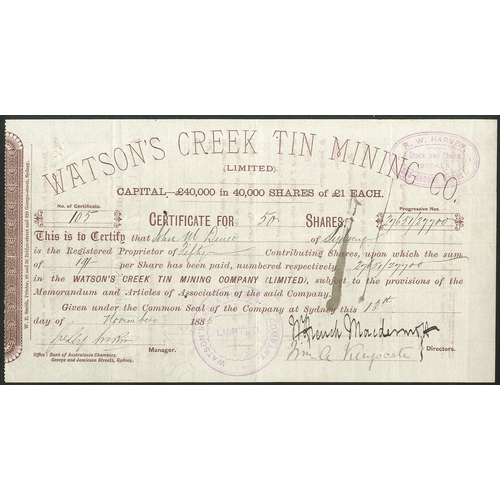 WATSON'S CREEK TIN MINING CO.
(LIMITED).
CAPITAL, £40,000 in 40,000 SHARES of £1 EACH.
No. of Certificate. Progressive Nos.
105 CERTIFICATE FOR 50 SHARES 27651/27700
This is to Certify that John W of Sydney
is the Registered Proprietor of Fifty Contributing Shares, upon which the sum
of per Share has been paid, numbered respectively 27651/27700
in the WATSON'S CREEK TIN MINING COMPANY (LIMITED), subject to the provisions of the
Memorandum and Articles of Association of the said Company.
Given under the Common Seal of the Company at Sydney this 13th
day of November 188
Manager.
Directors.
Office: Bank of Australasia Chambers,
George and Jamieson Streets, Sydney.
R. W. HARVEY
Stock and Share
WATSON'S
COMPANY
LIMITED